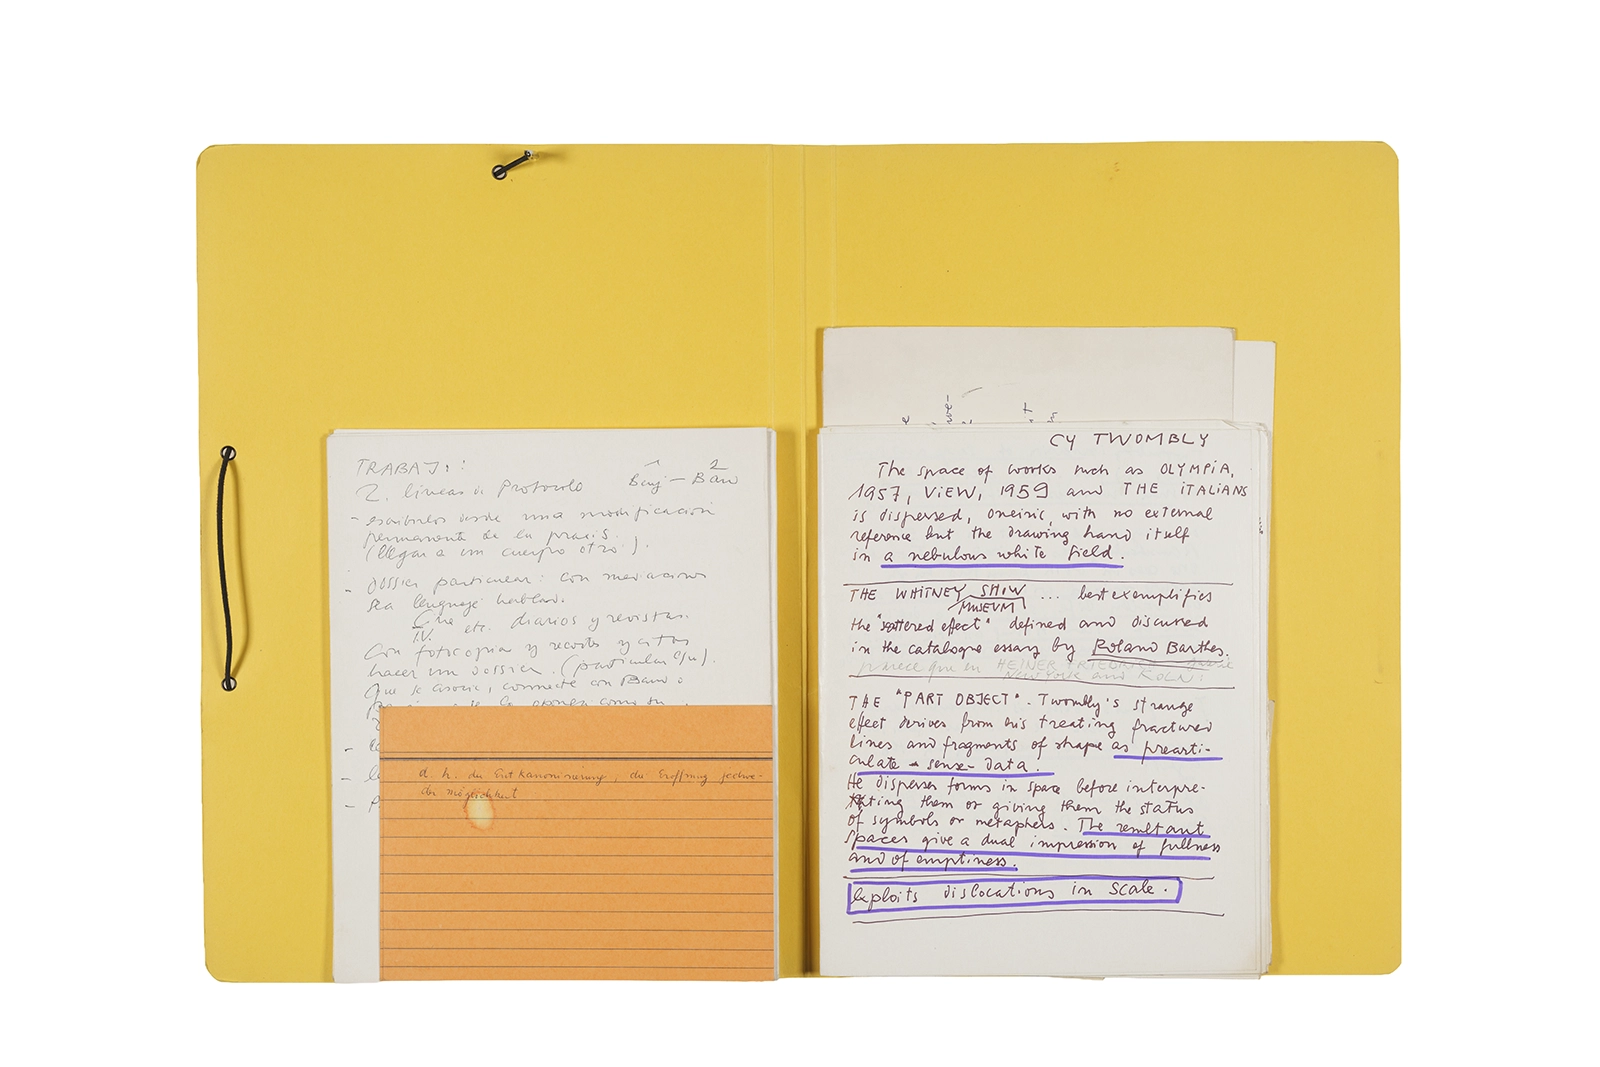 TRABAJ::
2. lineas de Protocolo
1 2
Benj — Bau
- escribirlos desde una modificación
permanente de la praxis.
(llegar a un cuerpo otro).
- Dossier particular: con
sea lenguaje hablado.
Cine etc. diarios y revistas.
T.V.
Con fotocopia y recortes y citas
hacer un dossier. (particular c/u).
que se asocie, conecte con Bau o
d. h. die Entkanonisierung, die Eröffnung jedwe-
der möglichkeit
CY TWOMBLY
The space of works such as OLYMPIA,
1957, VIEW, 1959 and THE ITALIANS
is dispersed, oneiric, with no external
reference but the drawing hand itself
in a nebulous white field.
THE WHITNEY SHOW ... best exemplifies
MUSEUM
the "scattered effect" defined and discussed
in the catalogue essay by Roland Barthes.
parece que en HEINER FRIEDRICH
NEW YORK and KÖLN!
THE "PART OBJECT". Twombly's strange
effect derives from his treating fractured
lines and fragments of shape as prearti-
culate - sense - data.
He disperses forms in space before interpre-
tating them or giving them the status
of symbols or metaphers. The resultant
spaces give a dual impression of fullness
and of emptiness.
Exploits dislocations in scale.